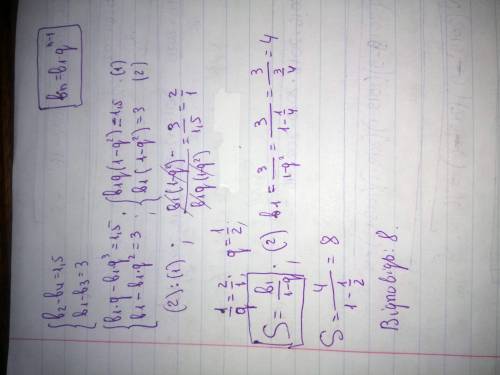 bn=b1q^(n-1)
{b2-b4=1,5
{b1-b3=3
{b1·q-b1q³=1,5; {b1q(1-q²)=1,5 (1)
{b1-b1q²=3; {b1(1-q²)=3 (2)
(2):(1); b1(1-q²)/b1q(1-q²)=3/1,5=2/1
1/q=2/1; q=1/2;
S=b1/(1-q); (2) b1=3/(1-q²)=3/(1-1/4)=3/(3/4)=4
S=4/(1-1/2)=8
Відповідь: 8.